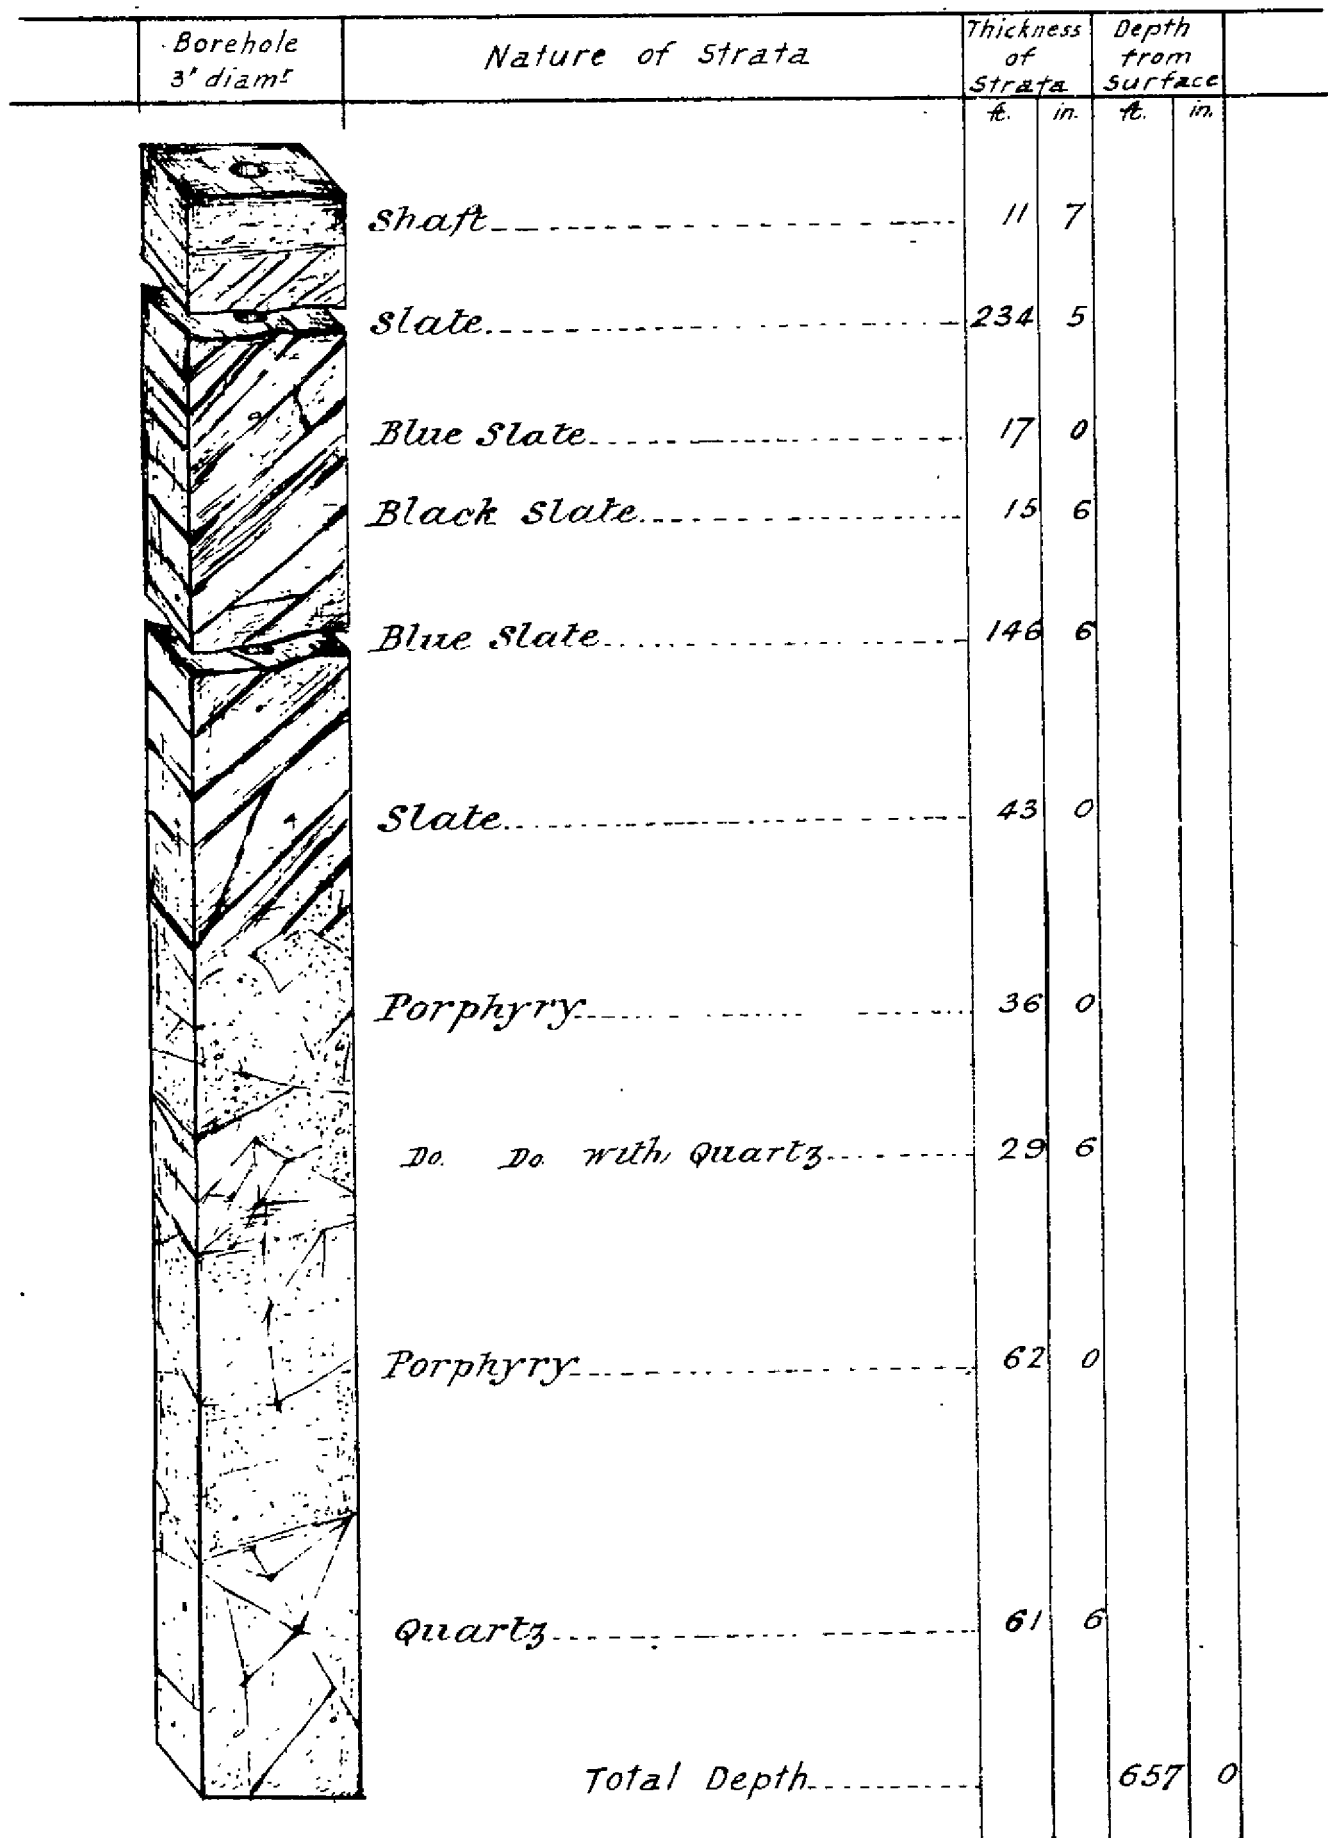 Borehole
3" diamr
Nature of Strata
Thickness
of
Strata
Depth
from
Surface
ft. in. ft. in.
Shaft 11 7
Slate 234 5
Blue Slate 17 0
Black Slate 15 6
Blue Slate 146 6
Slate 43 0
Porphyry 36 0
Do. Do. with Quartz 29 6
Porphyry 62 0
Quartz 61 6
Total Depth 657 0